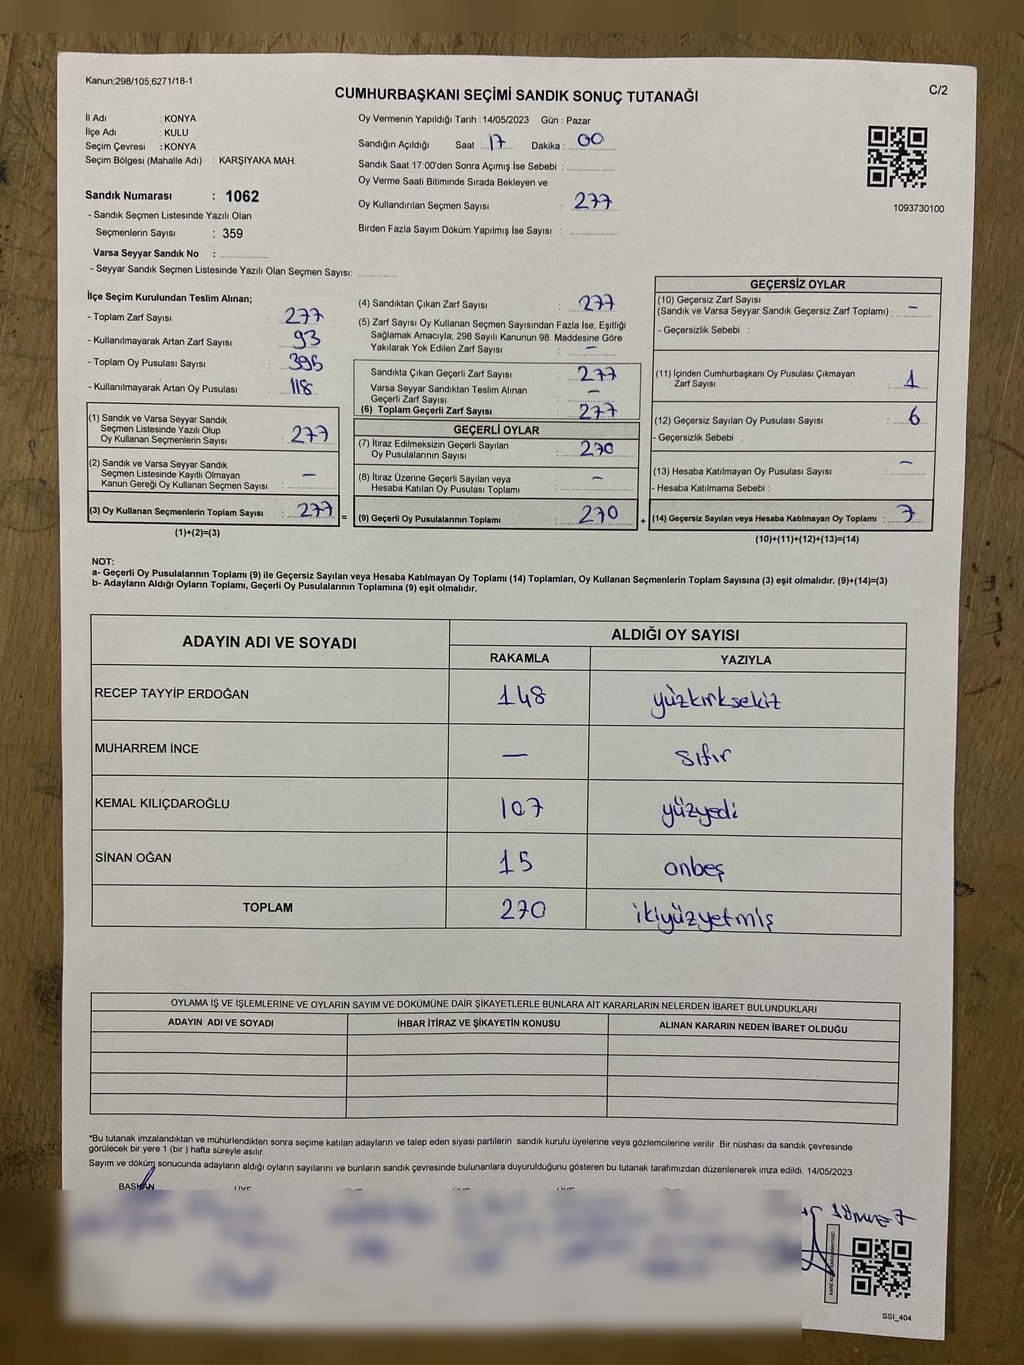 Kanun;298/105,6271/18-1
C/2
CUMHURBAŞKANI SEÇİMİ SANDIK SONUÇ TUTANAĞI
İl Adı : KONYA
İlçe Adı : KULU
Seçim Çevresi : KONYA
Seçim Bölgesi (Mahalle Adı) : KARŞIYAKA MAH.
Sandık Numarası : 1062
- Sandık Seçmen Listesinde Yazılı Olan
Seçmenlerin Sayısı : 359
Varsa Seyyar Sandık No :
- Seyyar Sandık Seçmen Listesinde Yazılı Olan Seçmen Sayısı:
Oy Vermenin Yapıldığı Tarih : 14/05/2023 Gün : Pazar
Sandığın Açıldığı Saat : 17 Dakika : 00
Sandık Saat 17:00'den Sonra Açımış İse Sebebi :
Oy Verme Saati Bitiminde Sırada Bekleyen ve
Oy Kullandırılan Seçmen Sayısı : 277
Birden Fazla Sayım Döküm Yapılmış İse Sayısı :
1093730100
İlçe Seçim Kurulundan Teslim Alınan;
- Toplam Zarf Sayısı : 277
- Kullanılmayarak Artan Zarf Sayısı : 93
- Toplam Oy Pusulası Sayısı : 395
- Kullanılmayarak Artan Oy Pusulası : 118
(1) Sandık ve Varsa Seyyar Sandık
Seçmen Listesinde Yazılı Olup
Oy Kullanan Seçmenlerin Sayısı : 277
(2) Sandık ve Varsa Seyyar Sandık
Seçmen Listesinde Kayıtlı Olmayan
Kanun Gereği Oy Kullanan Seçmen Sayısı : –
(3) Oy Kullanan Seçmenlerin Toplam Sayısı : 277 =
(1)+(2)=(3)
(4) Sandıktan Çıkan Zarf Sayısı : 277
(5) Zarf Sayısı Oy Kullanan Seçmen Sayısından Fazla İse, Eşitliği
Sağlamak Amacıyla, 298 Sayılı Kanunun 98. Maddesine Göre
Yakılarak Yok Edilen Zarf Sayısı : –
Sandıkta Çıkan Geçerli Zarf Sayısı : 277
Varsa Seyyar Sandıktan Teslim Alınan
Geçerli Zarf Sayısı : –
(6) Toplam Geçerli Zarf Sayısı : 277
GEÇERLİ OYLAR
(7) İtiraz Edilmeksizin Geçerli Sayılan
Oy Pusulalarının Sayısı : 270
(8) İtiraz Üzerine Geçerli Sayılan veya
Hesaba Katılan Oy Pusulası Toplamı : –
(9) Geçerli Oy Pusulalarının Toplamı : 270 +
GEÇERSİZ OYLAR
(10) Geçersiz Zarf Sayısı
(Sandık ve Varsa Seyyar Sandık Geçersiz Zarf Toplamı) : –
- Geçersizlik Sebebi :
(11) İçinden Cumhurbaşkanı Oy Pusulası Çıkmayan
Zarf Sayısı : 1
(12) Geçersiz Sayılan Oy Pusulası Sayısı : 6
- Geçersizlik Sebebi :
(13) Hesaba Katılmayan Oy Pusulası Sayısı : –
- Hesaba Katılmama Sebebi :
(14) Geçersiz Sayılan veya Hesaba Katılmayan Oy Toplamı : 7
(10)+(11)+(12)+(13)=(14)
NOT:
a- Geçerli Oy Pusulalarının Toplamı (9) ile Geçersiz Sayılan veya Hesaba Katılmayan Oy Toplamı (14) Toplamları, Oy Kullanan Seçmenlerin Toplam Sayısına (3) eşit olmalıdır. (9)+(14)=(3)
b- Adayların Aldığı Oyların Toplamı, Geçerli Oy Pusulalarının Toplamına (9) eşit olmalıdır.
ADAYIN ADI VE SOYADI ALDIĞI OY SAYISI
RAKAMLA YAZIYLA
RECEP TAYYİP ERDOĞAN 148 yüzkırksekiz
MUHARREM İNCE — sıfır
KEMAL KILIÇDAROĞLU 107 yüzyedi
SİNAN OĞAN 15 onbeş
TOPLAM 270 ikiyüzyetmiş
OYLAMA İŞ VE İŞLEMLERİNE VE OYLARIN SAYIM VE DÖKÜMÜNE DAİR ŞİKAYETLERLE BUNLARA AİT KARARLARIN NELERDEN İBARET BULUNDUKLARI
ADAYIN ADI VE SOYADI İHBAR İTİRAZ VE ŞİKAYETİN KONUSU ALINAN KARARIN NEDEN İBARET OLDUĞU
*Bu tutanak imzalandıktan ve mühürlendikten sonra seçime katılan adayların ve talep eden siyasi partilerin sandık kurulu üyelerine veya gözlemcilerine verilir. Bir nüshası da sandık çevresinde
görülecek bir yere 1 (bir) hafta süreyle asılır.
Sayım ve döküm sonucunda adayların aldığı oyların sayılarını ve bunların sandık çevresinde bulunanlara duyurulduğunu gösteren bu tutanak tarafımızdan düzenlenerek imza edildi. 14/05/2023
BAŞKAN
SSI_404